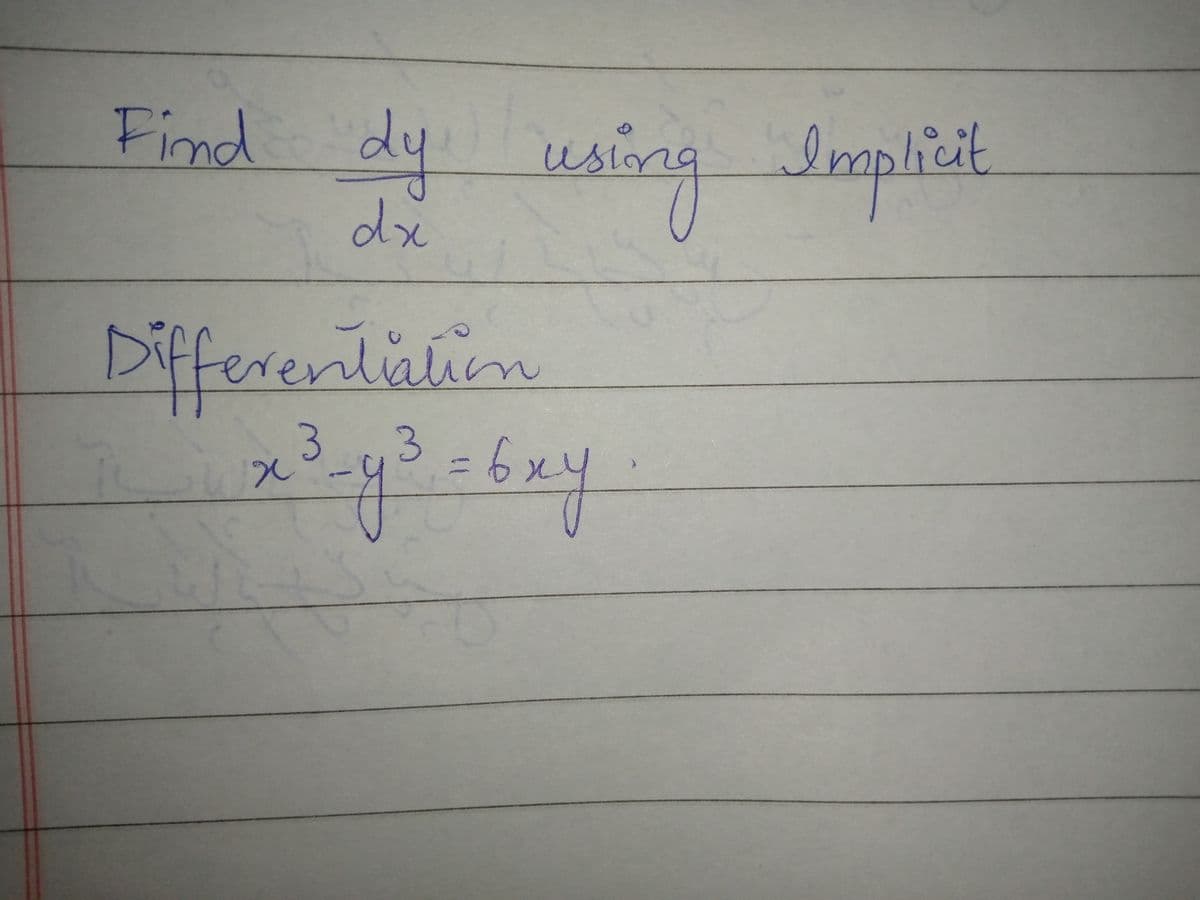 Find dy/dx using Implicit
Differentiation
x³-y³ = 6xy.